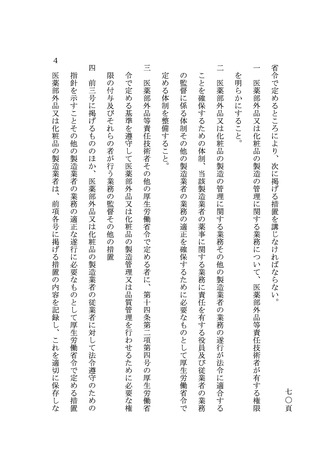 七〇頁
省令で定めるところにより、次に掲げる措置を講じなければならない。
一　医薬部外品又は化粧品の製造の管理に関する業務について、医薬部外品等責任技術者が有する権限
を明らかにすること。
二　医薬部外品又は化粧品の製造の管理に関する業務その他の製造業者の業務の遂行が法令に適合する
ことを確保するための体制、当該製造業者の薬事に関する業務に責任を有する役員及び従業者の業務
の監督に係る体制その他の製造業者の業務の適正を確保するために必要なものとして厚生労働省令で
定める体制を整備すること。
三　医薬部外品等責任技術者その他の厚生労働省令で定める者に、第十四条第二項第四号の厚生労働省
令で定める基準を遵守して医薬部外品又は化粧品の製造管理又は品質管理を行わせるために必要な権
限の付与及びそれらの者が行う業務の監督その他の措置
四　前三号に掲げるもののほか、医薬部外品又は化粧品の製造業者の従業者に対して法令遵守のための
指針を示すことその他の製造業者の業務の適正な遂行に必要なものとして厚生労働省令で定める措置
４　医薬部外品又は化粧品の製造業者は、前項各号に掲げる措置の内容を記録し、これを適切に保存しな